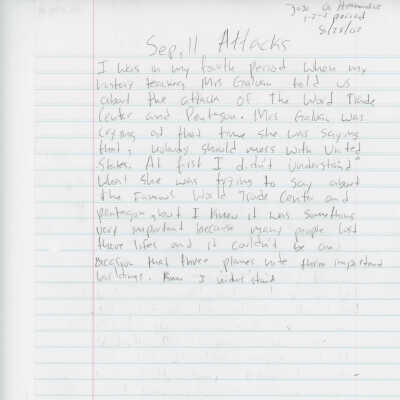 Jose A Hernandez
1-2-1 period
Sep, 11 Attacks
I was in my fourth period when my
history teacher, Mrs Galvan told us
about the attack of The Word Trade
Center and Pentagon. Mrs Galvan was
crying at that time she was saying
that, nobody should mess with United
States. At first I didn't understand
what she was trying to say about
the Famous World Trade Center and
pentagon, but I knew it was something
very important because many people lost
there lifes and it couldn't be an
that three planes these important
buildings. I understand